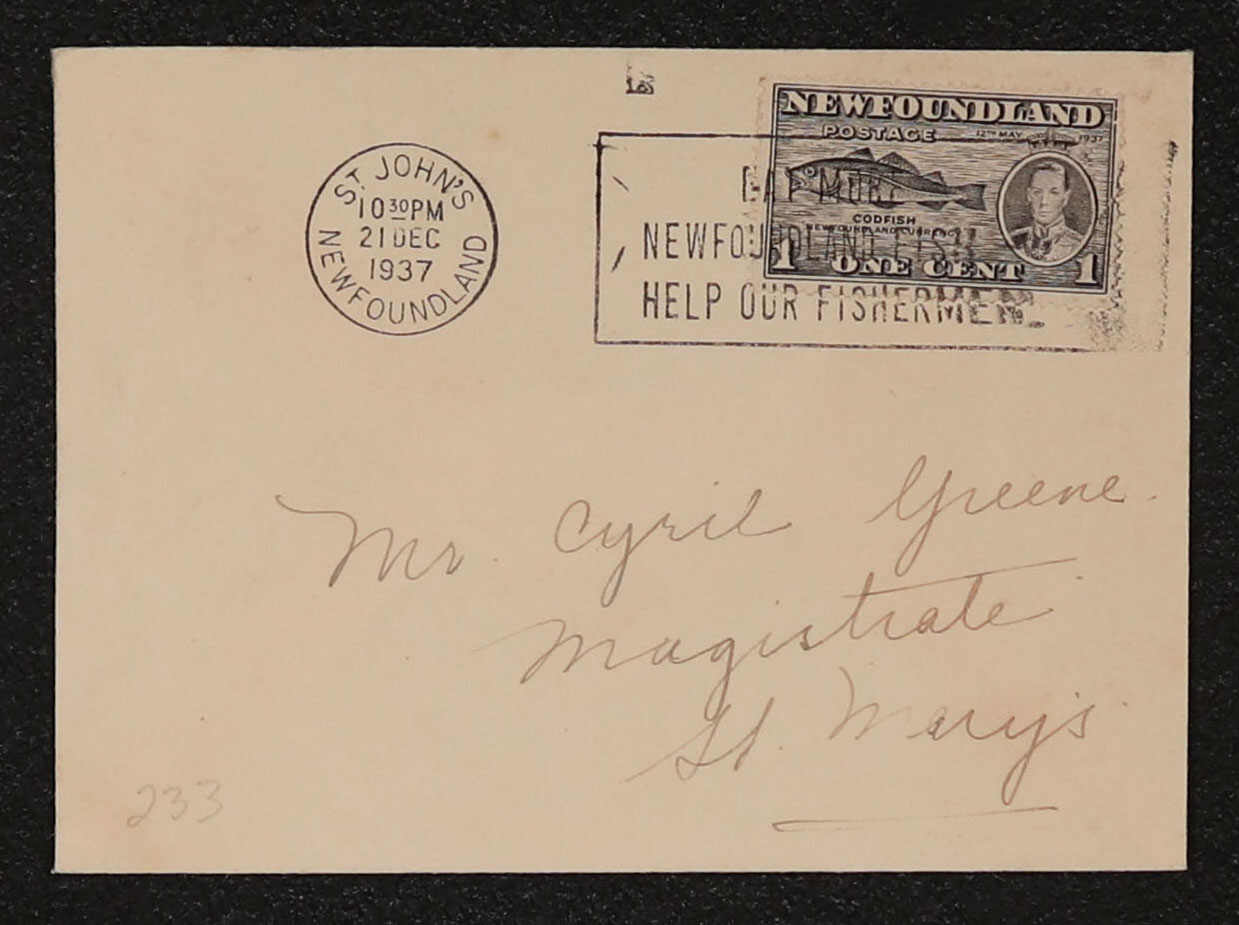 ST. JOHN'S
10 30 PM
21 DEC
1937
NEWFOUNDLAND
NEWFOUNDLAND
POSTAGE 12TH MAY 1937
CODFISH
NEWFOUNDLAND CURRENCY
1 ONE CENT 1
EAT MORE
NEWFOUNDLAND FISH
HELP OUR FISHERMEN
Mr. Cyril Greene.
Magistrate
St. Mary's
233